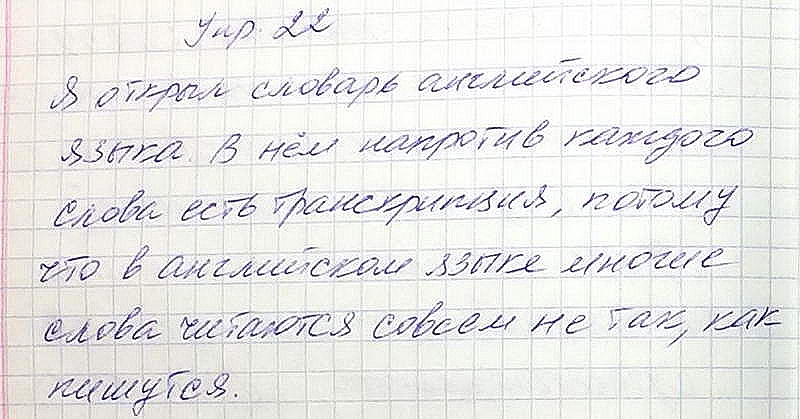 Упр. 22
Я открыл словарь английского
языка. В нём напротив каждого
слова есть транскрипция, потому
что в английском языке многие
слова читаются совсем не так, как
пишутся.